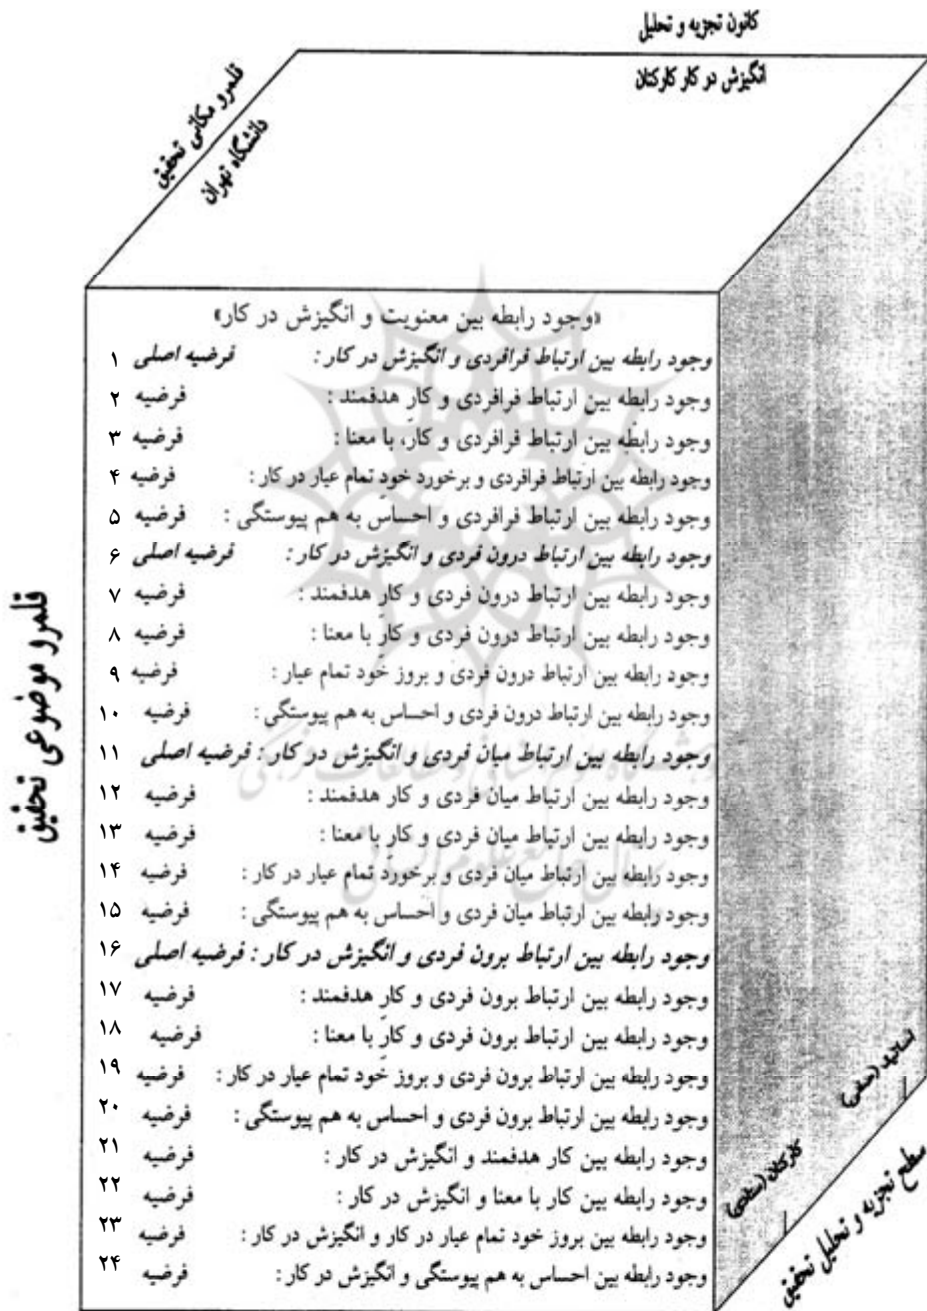 کانون تجزیه و تحلیل
انگیزش در کار کارکنان
قلمرو مکانی تحقیق
دانشگاه تهران
«وجود رابطه بین معنویت و انگیزش در کار»
وجود رابطه بین ارتباط فرافردی و انگیزش در کار : فرضیه اصلی ۱
وجود رابطه بین ارتباط فرافردی و کارِ هدفمند : فرضیه ۲
وجود رابطه بین ارتباط فرافردی و کار، با معنا : فرضیه ۳
وجود رابطه بین ارتباط فرافردی و برخورد خودِ تمام عیار در کار : فرضیه ۴
وجود رابطه بین ارتباط فرافردی و احساس به هم پیوستگی : فرضیه ۵
وجود رابطه بین ارتباط درون فردی و انگیزش در کار : فرضیه اصلی ۶
وجود رابطه بین ارتباط درون فردی و کارِ هدفمند : فرضیه ۷
وجود رابطه بین ارتباط درون فردی و کارِ با معنا : فرضیه ۸
وجود رابطه بین ارتباط درون فردی و بروز خود تمام عیار : فرضیه ۹
وجود رابطه بین ارتباط درون فردی و احساس به هم پیوستگی : فرضیه ۱۰
وجود رابطه بین ارتباط میان فردی و انگیزش در کار : فرضیه اصلی ۱۱
وجود رابطه بین ارتباط میان فردی و کار هدفمند : فرضیه ۱۲
وجود رابطه بین ارتباط میان فردی و کارِ با معنا : فرضیه ۱۳
وجود رابطه بین ارتباط میان فردی و برخورد تمام عیار در کار : فرضیه ۱۴
وجود رابطه بین ارتباط میان فردی و احساس به هم پیوستگی : فرضیه ۱۵
وجود رابطه بین ارتباط برون فردی و انگیزش در کار : فرضیه اصلی ۱۶
وجود رابطه بین ارتباط برون فردی و کارِ هدفمند : فرضیه ۱۷
وجود رابطه بین ارتباط برون فردی و کارِ با معنا : فرضیه ۱۸
وجود رابطه بین ارتباط برون فردی و بروز خود تمام عیار در کار : فرضیه ۱۹
وجود رابطه بین ارتباط برون فردی و احساس به هم پیوستگی : فرضیه ۲۰
وجود رابطه بین کار هدفمند و انگیزش در کار : فرضیه ۲۱
وجود رابطه بین کار با معنا و انگیزش در کار : فرضیه ۲۲
وجود رابطه بین بروز خود تمام عیار در کار و انگیزش در کار : فرضیه ۲۳
وجود رابطه بین احساس به هم پیوستگی و انگیزش در کار : فرضیه ۲۴
قلمرو موضوعی تحقیق
اساتید (صفی)
کارکنان (ستادی)
سطح تجزیه و تحلیل تحقیق
پژوهشگاه علوم انسانی و مطالعات فرهنگی
پرتال جامع علوم انسانی